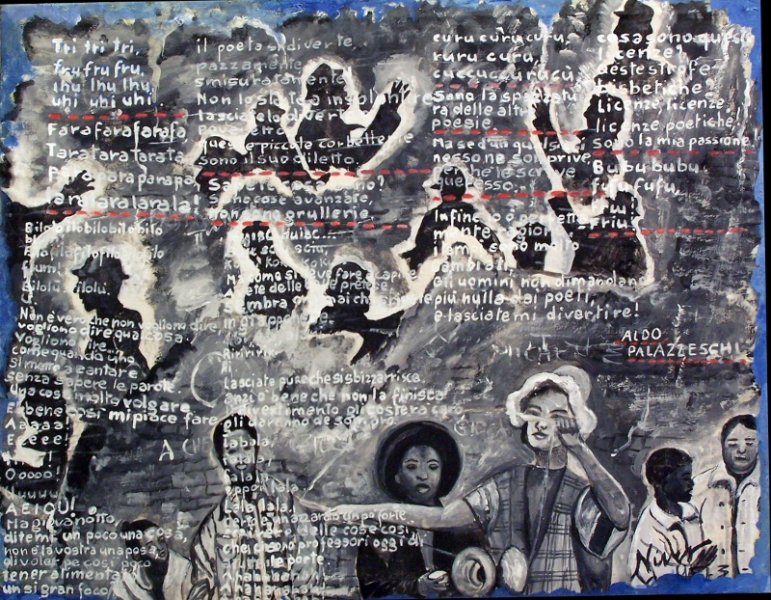 Tri tri tri,
fru fru fru,
ihu ihu ihu,
uhi uhi uhi
Farafarafarafa
Taratarataratа
Paraparaparapa,
laralaralarala!
Bilobilobilobilobilo
Filofilofilofilofilo
flum!
Bilolù. Filolù.
U.
Non è vero che non vogliono dire,
vogliono dire qualcosa.
Vogliono dire
come quando uno
si mette a cantare
senza sapere le parole.
Una cosa molto volgare
Ebbene così mi piace fare
Aaaaa!
Eeeee!
Ooooo!
Uuuuu
A E I O U!
Ma giovanotto,
ditemi un poco una cosa,
non è la vostra una posa,
di voler così poco
tener alimentato
un sì gran foco
il poeta si diverte,
pazzamente,
smisuratamente
Non lo state a insolentire
lasciatelo divertire
poveretto,
queste piccole corbellerie
sono il suo diletto.
sono cose avanzate,
sono grullerie,
Ma come si deve fare a capire
Avete delle belle pretese,
sembra ormai che scriviate
in giapponese
Lasciate pure che si sbizzarrisca,
anzi è bene che non la finisca
il divertimento gli costerà caro
gli daranno del somaro
Labala
falala
lala.
Lalala lala.
Certo è un azzardo un po' forte
scrivere delle cose così
che ci sono professori oggidì
a tutte le porte
Ahahahahahah
curu curu curu,
ruru curu,
cuccuccurucù,
Sono la spazzatura
ra delle altre
poesie
Ma se d'un qualsiasi
nesso ne son prive
perché le scrive
quel fesso.
Infine io ò perfetta-
mente ragione
i tempi sono molto
cambiati,
Gli uomini non dimandano
più nulla dai poeti,
e lasciatemi divertire!
cosa sono queste
licenze?
Licenze, licenze,
licenze poetiche!
Sono la mia passione.
Bubububu
fufufufu,
Friu!
ALDO
PALAZZESCHI